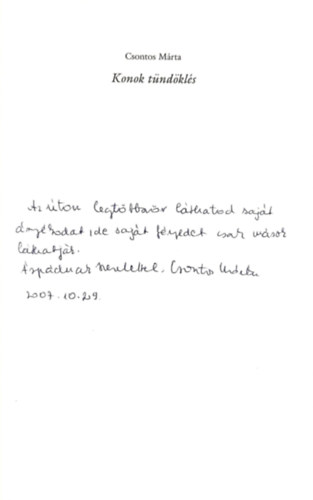 Csontos Márta
Konok tündöklés
Az úton legtöbbször láthatod saját
árnyékodat, de saját fényedet csak mások
láthatják.
Árpádnak szeretettel, Csontos Márta
2007.10.29.